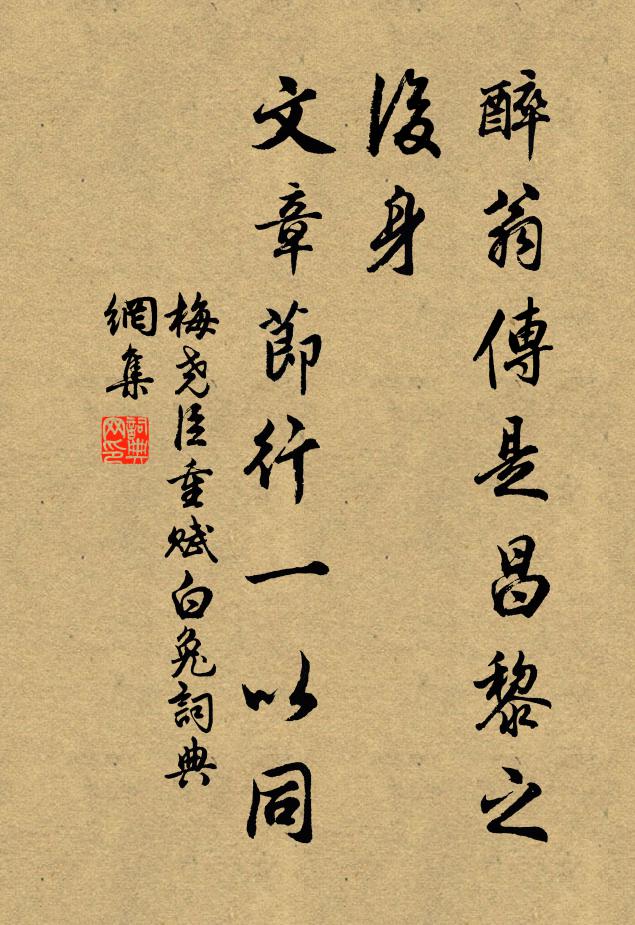 醉翁傳是昌黎之
後身
文章節行一以同
梅堯臣重賦白兔詞典
網集
詞典
网印